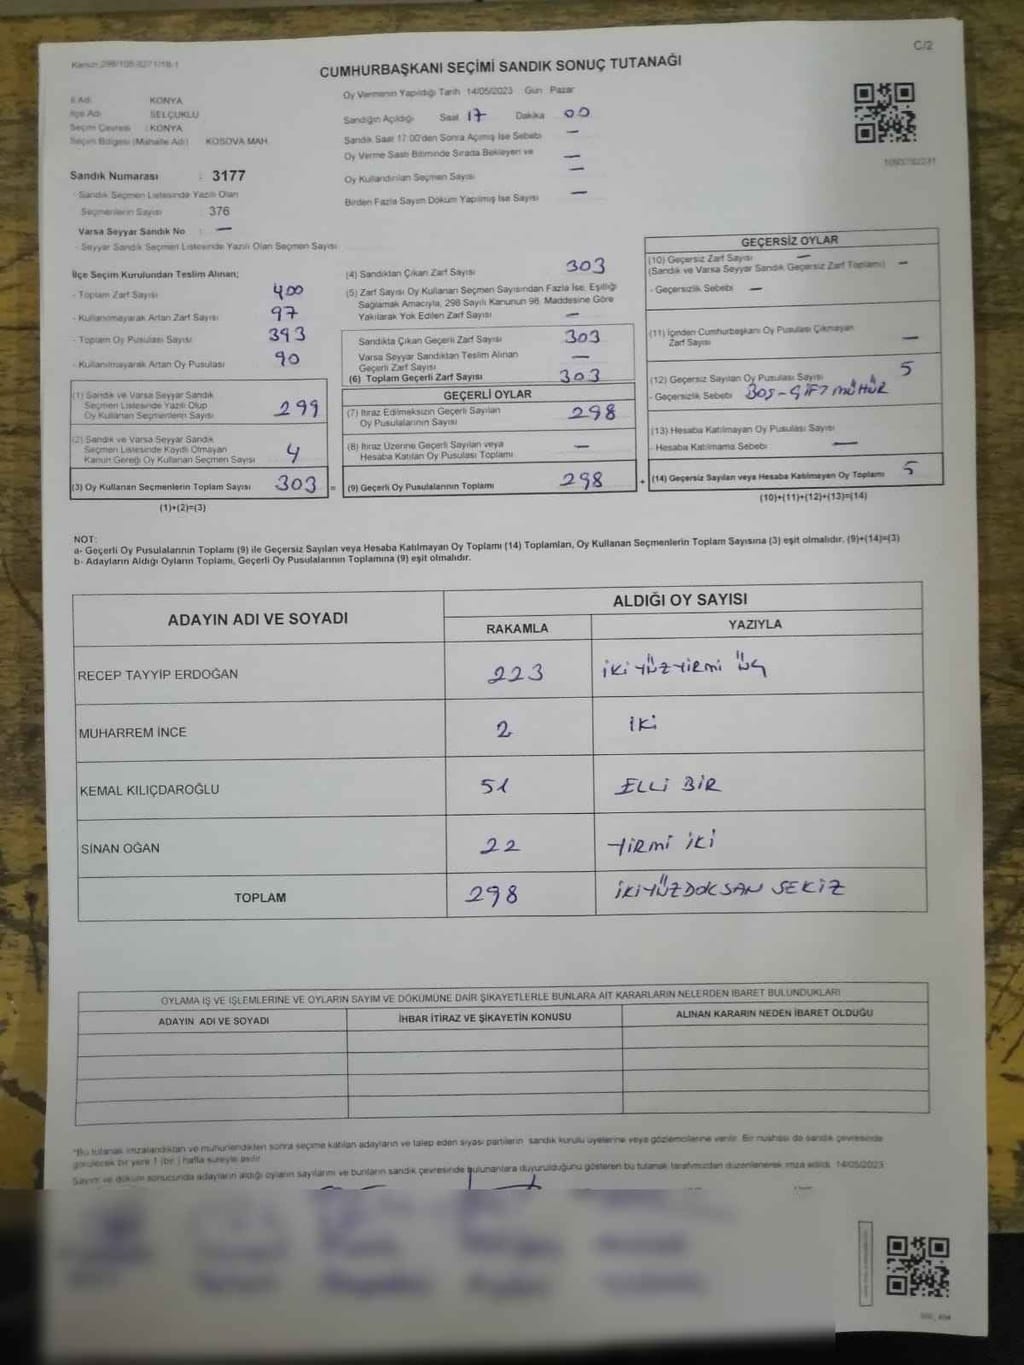 C/2
CUMHURBAŞKANI SEÇİMİ SANDIK SONUÇ TUTANAĞI
İl Adı KONYA
İlçe Adı SELÇUKLU
Seçim Çevresi : KONYA
Seçim Bölgesi (Mahalle Adı) KOSOVA MAH.
Sandık Numarası : 3177
- Sandık Seçmen Listesinde Yazılı Olan
Seçmenlerin Sayısı 376
Varsa Seyyar Sandık No : —
- Seyyar Sandık Seçmen Listesinde Yazılı Olan Seçmen Sayısı
Oy Vermenin Yapıldığı Tarih 14/05/2023 Gün Pazar
Sandığın Açıldığı Saat 17 Dakika 00
Sandık Saat 17:00'den Sonra Açılmış İse Sebebi —
Oy Verme Saati Bitiminde Sırada Bekleyen ve —
Oy Kullandırılan Seçmen Sayısı —
Birden Fazla Sayım Döküm Yapılmış İse Sayısı —
İlçe Seçim Kurulundan Teslim Alınan;
- Toplam Zarf Sayısı 400
- Kullanılmayarak Artan Zarf Sayısı 97
- Toplam Oy Pusulası Sayısı 393
- Kullanılmayarak Artan Oy Pusulası 90
(1) Sandık ve Varsa Seyyar Sandık
Seçmen Listesinde Yazılı Olup
Oy Kullanan Seçmenlerin Sayısı 299
(2) Sandık ve Varsa Seyyar Sandık
Seçmen Listesinde Kayıtlı Olmayan
Kanun Gereği Oy Kullanan Seçmen Sayısı 4
(3) Oy Kullanan Seçmenlerin Toplam Sayısı 303 =
(1)+(2)=(3)
(4) Sandıktan Çıkan Zarf Sayısı 303
(5) Zarf Sayısı Oy Kullanan Seçmen Sayısından Fazla İse, Eşitliği
Sağlamak Amacıyla, 298 Sayılı Kanunun 98. Maddesine Göre
Yakılarak Yok Edilen Zarf Sayısı —
Sandıkta Çıkan Geçerli Zarf Sayısı 303
Varsa Seyyar Sandıktan Teslim Alınan
Geçerli Zarf Sayısı —
(6) Toplam Geçerli Zarf Sayısı 303
GEÇERLİ OYLAR
(7) İtiraz Edilmeksizin Geçerli Sayılan
Oy Pusulalarının Sayısı 298
(8) İtiraz Üzerine Geçerli Sayılan veya
Hesaba Katılan Oy Pusulası Toplamı —
(9) Geçerli Oy Pusulalarının Toplamı 298 +
GEÇERSİZ OYLAR
(10) Geçersiz Zarf Sayısı —
(Sandık ve Varsa Seyyar Sandık Geçersiz Zarf Toplamı) —
- Geçersizlik Sebebi —
(11) İçinden Cumhurbaşkanı Oy Pusulası Çıkmayan
Zarf Sayısı —
(12) Geçersiz Sayılan Oy Pusulası Sayısı 5
- Geçersizlik Sebebi BOŞ-ÇİFT MÜHÜR
(13) Hesaba Katılmayan Oy Pusulası Sayısı
Hesaba Katılmama Sebebi —
(14) Geçersiz Sayılan veya Hesaba Katılmayan Oy Toplamı 5
(10)+(11)+(12)+(13)=(14)
NOT:
a- Geçerli Oy Pusulalarının Toplamı (9) ile Geçersiz Sayılan veya Hesaba Katılmayan Oy Toplamı (14) Toplamları, Oy Kullanan Seçmenlerin Toplam Sayısına (3) eşit olmalıdır. (9)+(14)=(3)
b- Adayların Aldığı Oyların Toplamı, Geçerli Oy Pusulalarının Toplamına (9) eşit olmalıdır.
ADAYIN ADI VE SOYADI ALDIĞI OY SAYISI
RAKAMLA YAZIYLA
RECEP TAYYİP ERDOĞAN 223 İKİ YÜZ YİRMİ ÜÇ
MUHARREM İNCE 2 İKİ
KEMAL KILIÇDAROĞLU 51 ELLİ BİR
SİNAN OĞAN 22 YİRMİ İKİ
TOPLAM 298 İKİYÜZDOKSAN SEKİZ
OYLAMA İŞ VE İŞLEMLERİNE VE OYLARIN SAYIM VE DÖKÜMÜNE DAİR ŞİKAYETLERLE BUNLARA AİT KARARLARIN NELERDEN İBARET BULUNDUKLARI
ADAYIN ADI VE SOYADI İHBAR İTİRAZ VE ŞİKAYETİN KONUSU ALINAN KARARIN NEDEN İBARET OLDUĞU
"Bu tutanak imzalandıktan ve mühürlendikten sonra seçime katılan adayların ve talep eden siyasi partilerin sandık kurulu üyelerine veya gözlemcilerine verilir. Bir nüshası da sandık çevresinde
görülecek bir yere 1 (bir) hafta süreyle asılır.
Sayım ve döküm sonucunda adayların aldığı oyların sayılarını ve bunların sandık çevresinde bulunanlara duyurulduğunu gösteren bu tutanak tarafımızdan düzenlenerek imza edildi. 14/05/2023